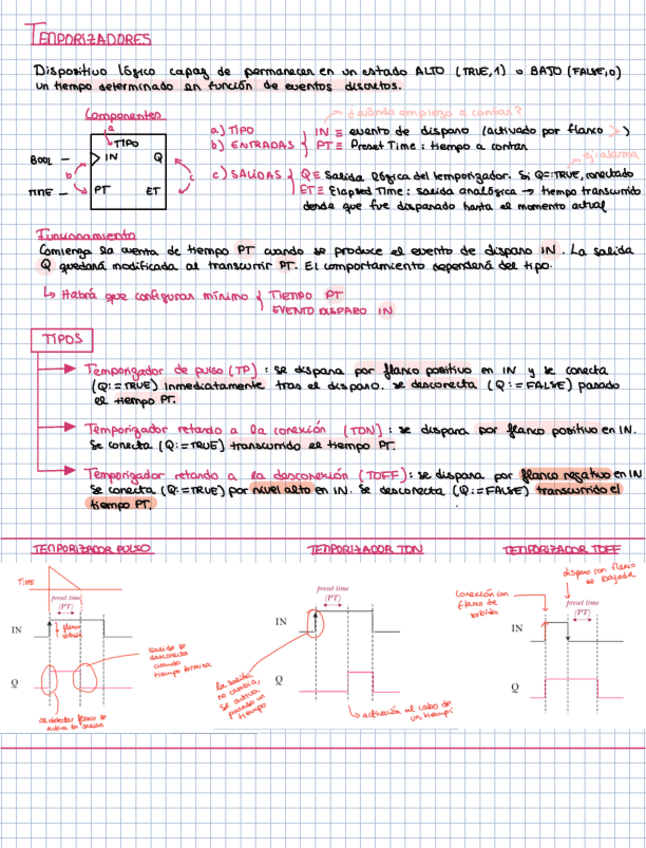 TEMPORIZADORES
Dispositivo lógico capaz de permanecer en un estado ALTO (TRUE,1) o BAJO (FALSE,0)
un tiempo determinado en función de eventos discretos.
Componentes
a
TIPO
BOOL
IN
Q
b
c
TIME
PT
ET
¿cuándo empiezo a contar?
a) TIPO
b) ENTRADAS
IN ≡ evento de disparo (activado por flanco )
PT ≡ Preset Time: tiempo a contar
ej: alarma
c) SALIDAS
Q ≡ Salida lógica del temporizador. Si Q:=TRUE, conectado
ET ≡ Elapsed Time: salida analógica → tiempo transcurrido
desde que fue disparado hasta el momento actual
Funcionamiento
Comienza la cuenta de tiempo PT cuando se produce el evento de disparo IN. La salida
Q quedará modificada al transcurrir PT. El comportamiento dependerá del tipo.
↳ Habrá que configurar mínimo
TIEMPO PT
EVENTO DISPARO IN
TIPOS
Temporizador de pulso (TP): se dispara por flanco positivo en IN y se conecta
(Q:=TRUE) inmediatamente tras el disparo. se desconecta (Q:=FALSE) pasado
el tiempo PT.
Temporizador retardo a la conexión (TON): se dispara por flanco positivo en IN.
Se conecta (Q:=TRUE) transcurrido el tiempo PT.
Temporizador retardo a la desconexión (TOFF): se dispara por flanco negativo en IN
Se conecta (Q:=TRUE) por nivel alto en IN. Se desconecta (Q:=FALSE) transcurrido el
tiempo PT.
TEMPORIZADOR PULSO
TEMPORIZADOR TON
TEMPORIZADOR TOFF
TIME
preset time
(PT)
IN
flanco
subida
Q
salida se
desconecta
cuando
tiempo termina
al detectar flanco se
activa la salida
preset time
(PT)
IN
Q
la salida
no cambia,
se activa
pasado un
tiempo
↳ activación al cabo de
un tiempo
disparo con flanco
de bajada
conexión con
flanco de
subida
preset time
(PT)
IN
Q